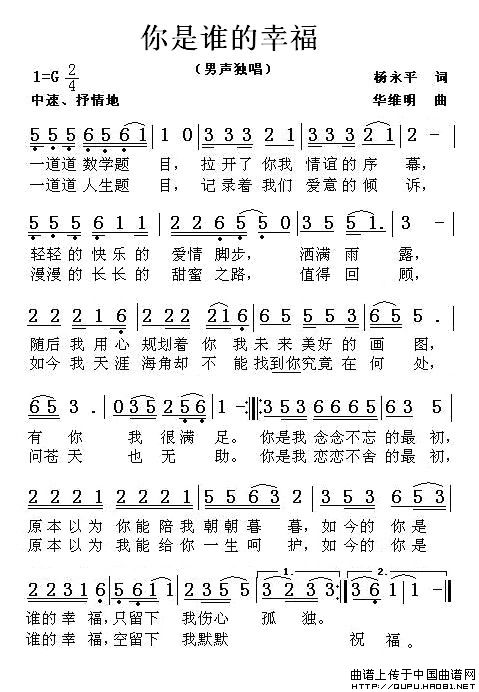 你是谁的幸福
（男声独唱）
1=G 2/4
杨永平 词
中速、抒情地
华维明 曲
5 5 5 6 5 6 1 | 1 0 | 3 3 3 3 3 3 | 3 2 1 | 2 - |
一道道 数学题 目， 拉开了 你我 情谊的 序 幕，
一道道 人生题 目， 记录着 我们 爱意的 倾 诉，
5 5 5 5 6 1 1 | 2 2 6 5 5 5 0 | 3 5 5 | 5 1. |
轻轻的 快乐的 爱情 脚步， 洒满 雨 露，
漫漫的 长长的 甜蜜 之路， 值得 回 顾，
2 2 2 1 6 | 2 2 2 2 1 6 | 6 5 5 5 3 | 6 5 5. |
随后 我 用心 规划着 你 我 未来 美好的 画 图，
如今 我 天涯 海角却 不 能 找到你 究竟 在 何 处，
6 5 3. | 0 3 5 2 5 6 | 1 - :||: 3 5 3 5 6 6 6 5 | 6 3 5 |
有 你 我 很满 足。 你是我 念念不忘的 最 初，
问苍 天 也 无 助。 你是我 恋恋不舍 的 最 初，
2 2 2 1 2 2 2 1 | 5 5 6 3 2 | 3 5 3 | 6 5 3 |
原本以为 你能陪我 朝朝暮 暮， 如今的 你是
原本以为 我能给你 一生呵 护， 如今的 你是
2 2 3 1 6 | 5 6 1 1 | 2 3 5 5 | 3 2 3 3 :|| 3 6 1 | 1 - ||
1.3.
2.4.
谁的幸 福，只留下 我伤心 孤 独。
谁的幸 福，空留下 我默默 祝 福。
曲谱上传于中国曲谱网
http://QUPU.HAO81.NET